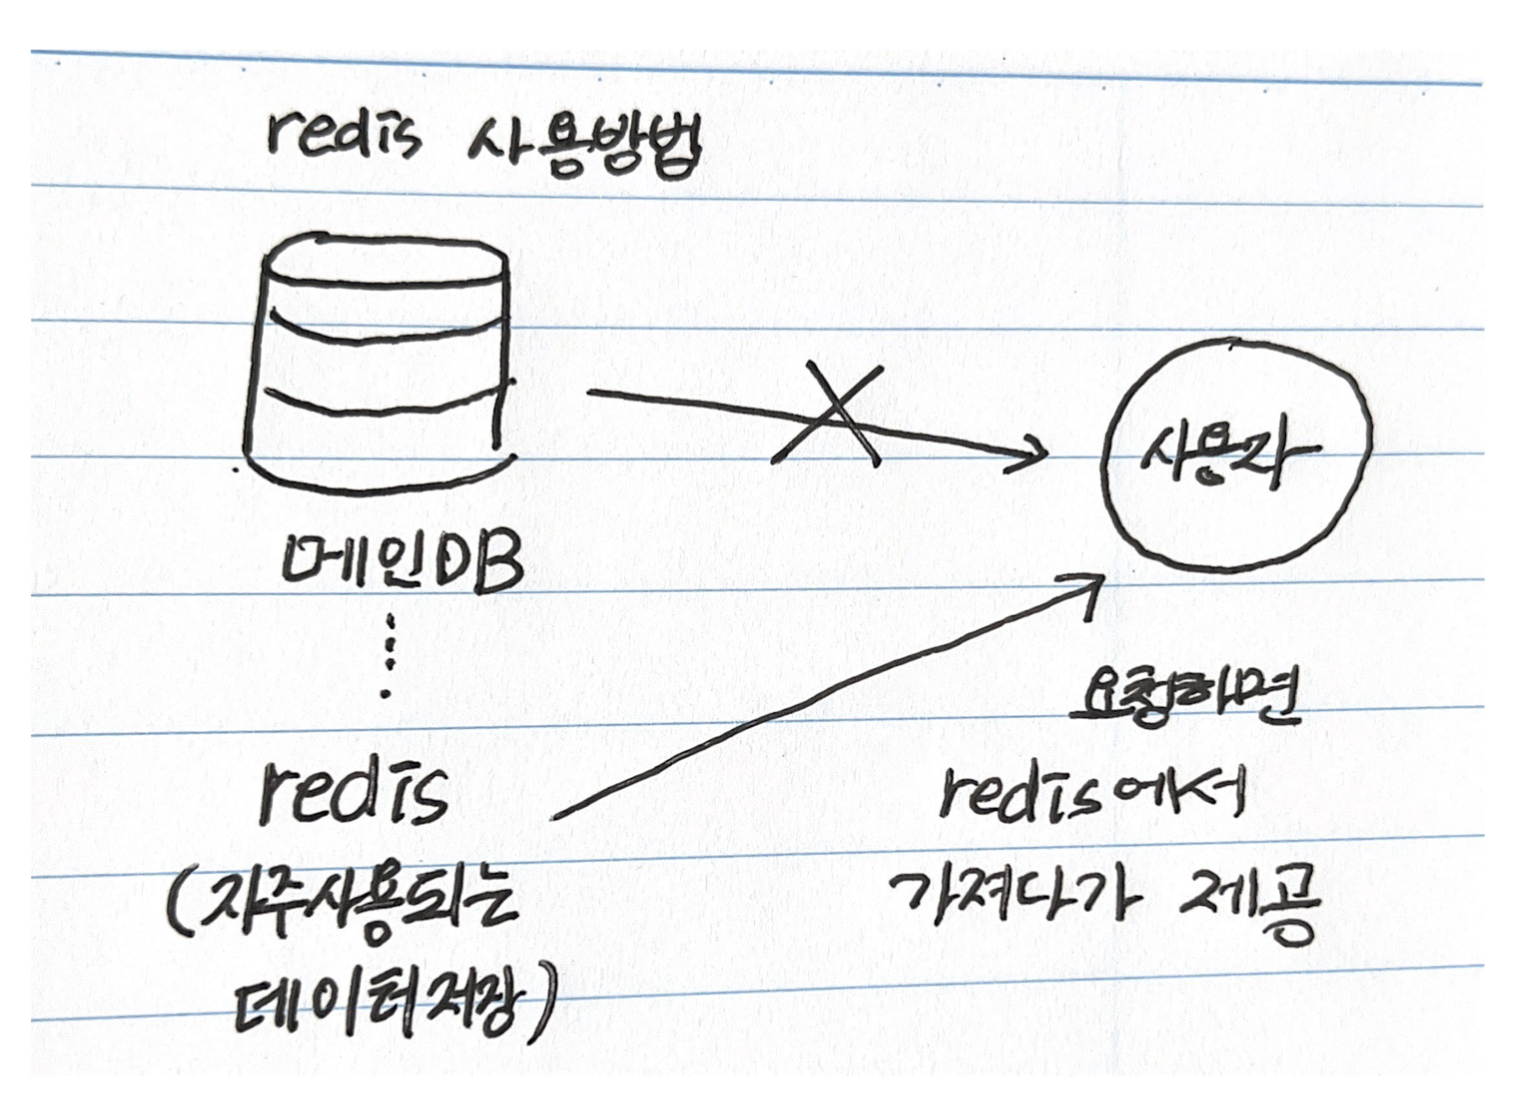 redis 사용방법
사용자
메인DB
요청하면
redis
redis에서
(자주사용되는
가져다가 제공
데이터저장)